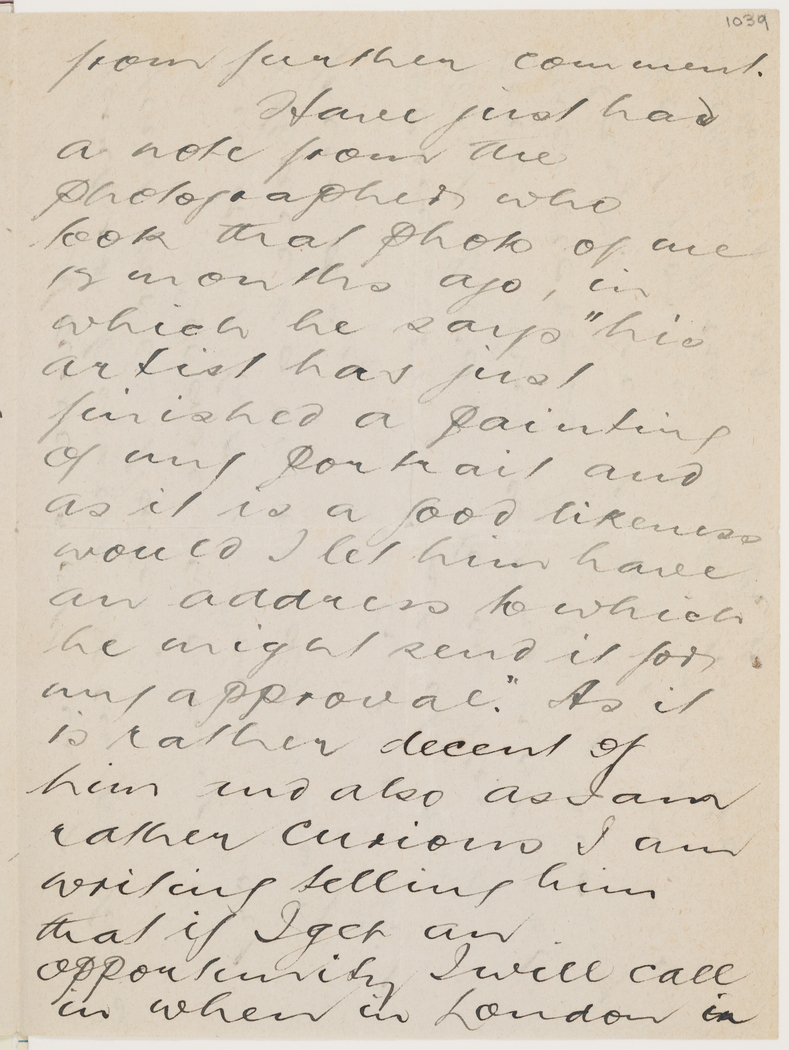 1039
from further comment.
Have just had
a note from the
photographer who
took that photo of me
months ago, in
which he says "his
artist has just
finished a painting
of my portrait and
as it is a good likeness
would I let him have
an address to which
he might send it for
my approval." As it
is rather decent of
him and also as I am
rather curious I am
writing telling him
that if I get an
opportunity I will call
in when in London in